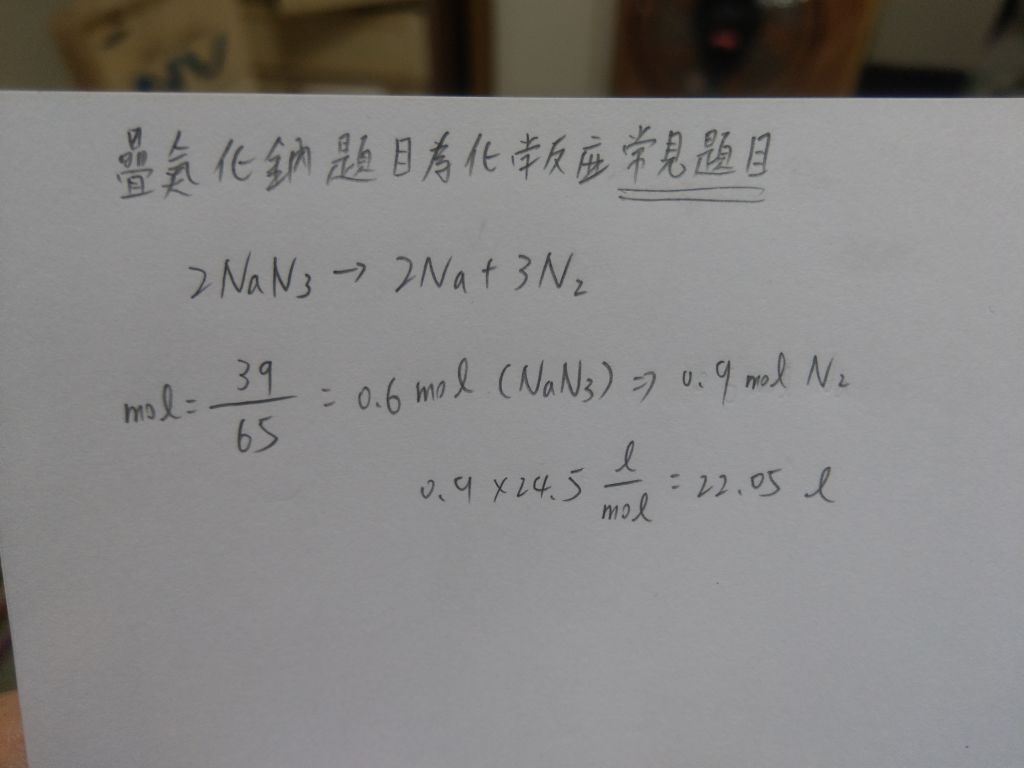 疊氮化鈉題目為化學反應常見題目
2NaN₃ → 2Na + 3N₂
mol = 39/65 = 0.6 mol (NaN₃) ⇒ 0.9 mol N₂
0.9 × 24.5 l/mol = 22.05 l